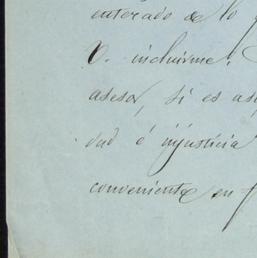 enterado de lo
V. incluirme.
asesor, si es as
dad é injusticia
conveniente en f